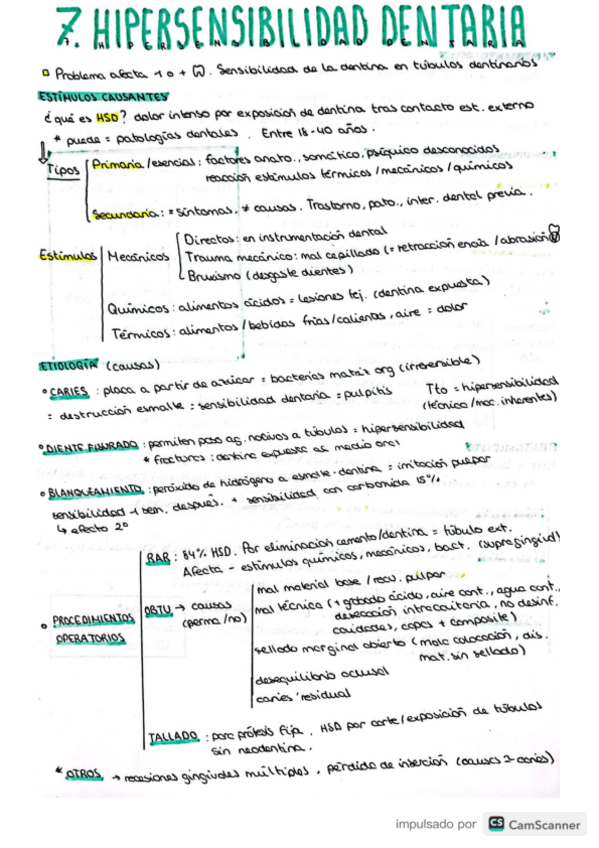 7. HIPERSENSIBILIDAD DENTARIA
Problema afecta 1 o + Sensibilidad de la dentina en túbulos dentinarios
ESTÍMULOS CAUSANTES
¿qué es HSD? dolor intenso por exposición de dentina tras contacto est. externo
* puede = patologías dentales. Entre 18-40 años.
Tipos
Primaria/esencial: factores anato., somático, psíquico desconocidos
reacción estímulos térmicos/mecánicos/químicos
Secundaria: = síntomas. ≠ causas. Trastorno, pato., inter. dental previa.
Estímulos
Mecánicos
Directos: en instrumentación dental
Trauma mecánico: mal cepillado (= retracción encía/abrasión)
Bruxismo (desgaste dientes)
Químicos: alimentos ácidos = lesiones tej. (dentina expuesta)
Térmicos: alimentos/bebidas frías/calientes, aire = dolor
ETIOLOGÍA (causas)
• CARIES: placa a partir de azúcar = bacterias matriz org (irreversible)
= destrucción esmalte = sensibilidad dentaria = pulpitis
Tto = hipersensibilidad
(técnica/mac. inherentes)
• DIENTE FISURADO: permiten paso ag. nocivos a túbulos = hipersensibilidad
* fracturas: dentina expuesta al medio oral
• BLANQUEAMIENTO: peróxido de hidrógeno a esmalte-dentina = irritación pulpar
sensibilidad 1 sem. después. + sensibilidad con carbamida 15%
↳ efecto 2º
• PROCEDIMIENTOS
OPERATORIOS
RAR: 84% HSD. Por eliminación cemento/dentina = túbulo ext.
Afecta - estímulos químicos, mecánicos, bact. (supragingival)
OBTU → causas
(perma/no)
mal material base/recu. pulpar
mal técnica (+ grabado ácido, aire cont., agua cont.,
desecación intracavitaria, no desinf.
cavidades, capas + composite)
sellado marginal abierto (mala colocación, dis.
mat. sin sellado)
desequilibrio oclusal
caries residual
TALLADO: para prótesis fija. HSD por corte/exposición de túbulos
sin neodentina.
* OTROS → recesiones gingivales múltiples, pérdida de inserción (causas 2 caries)
impulsado por CS CamScanner